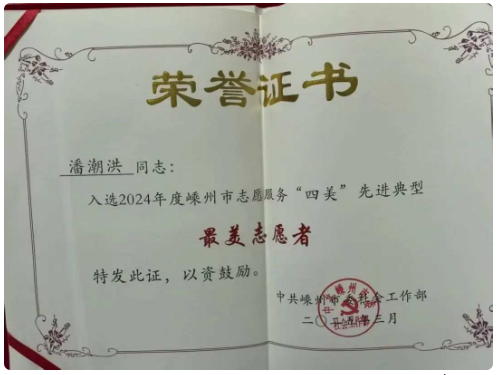 荣誉证书
潘潮洪 同志:
入选2024年度嵊州市志愿服务“四美”先进典型
最美志愿者
特发此证,以资鼓励。
中共嵊州市委社会工作部
二〇二五年三月